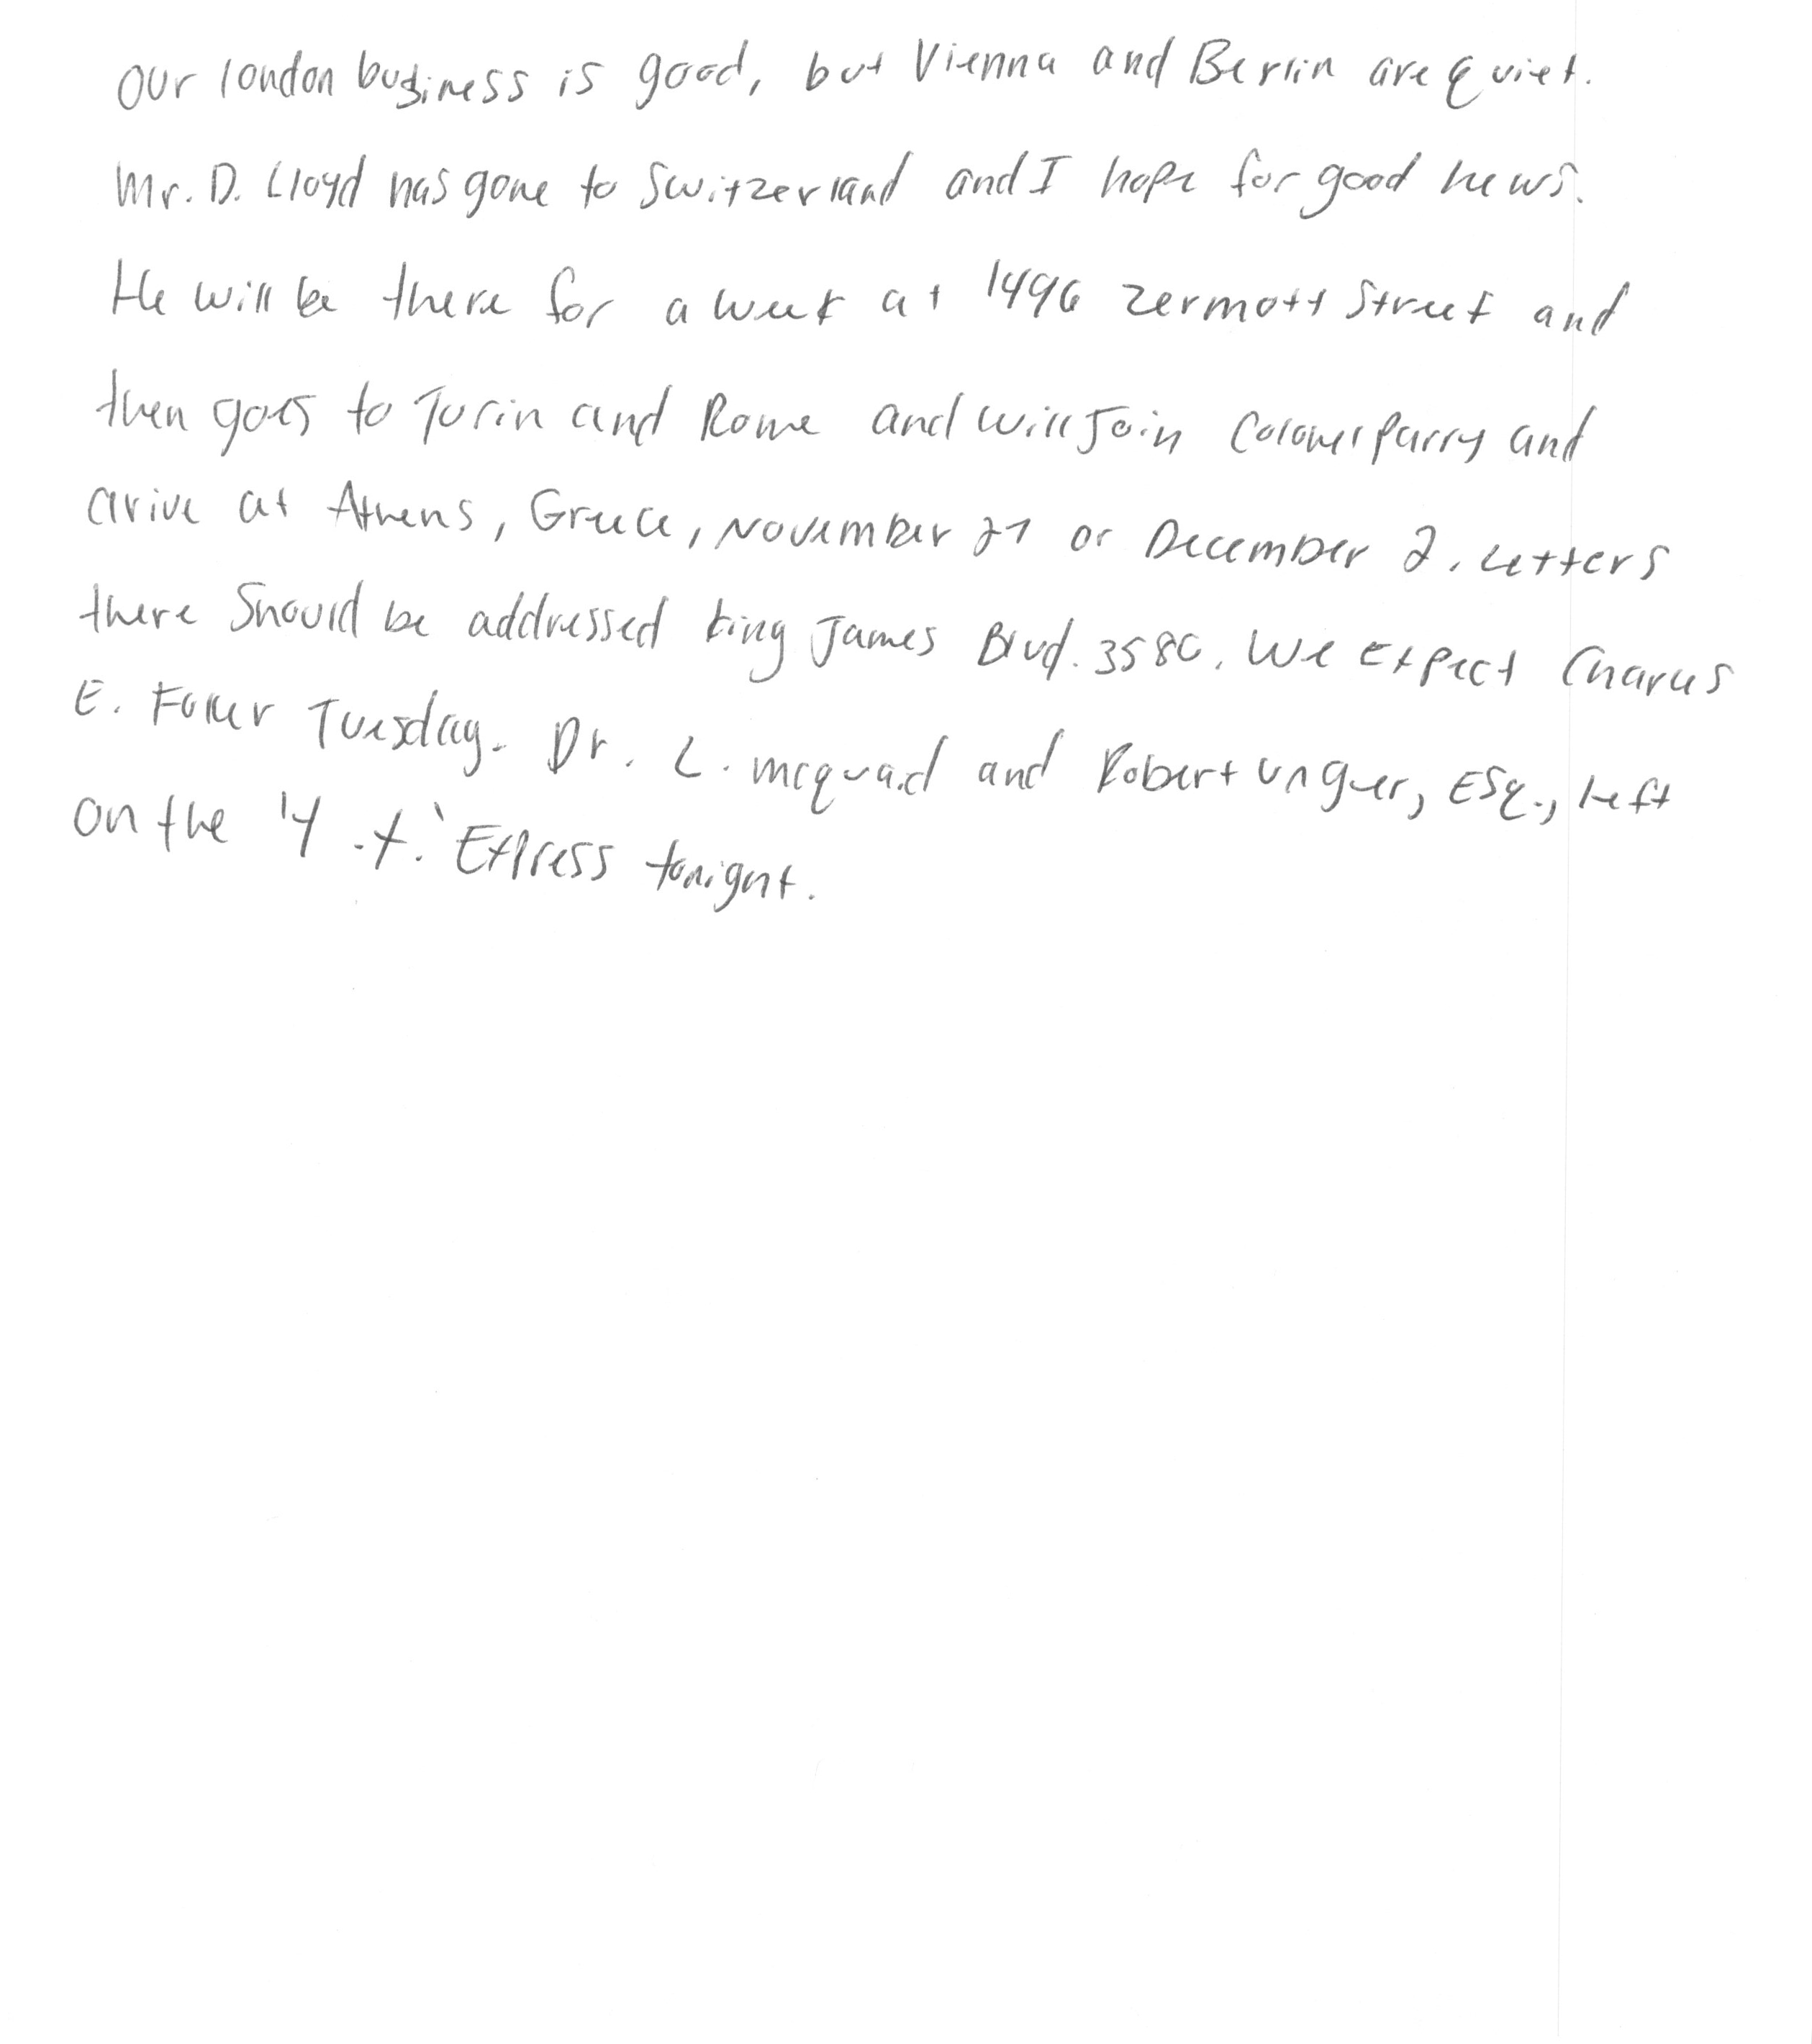 Our london business is good, but Vienna and Berlin are quiet.
Mr. D. Lloyd has gone to Switzerland and I hope for good news.
He will be there for a week at 1496 Zermott Street and
then goes to Turin and Rome and will Join Colonel Parry and
arive at Athens, Greece, November 27 or December 2. Letters
there Should be addressed King James Blvd. 3580. We expect Charles
E. Fuller Tuesday. Dr. L. McQuaid and Robert Unger, Esq., left
on the 'Y.X.' Express tonight.